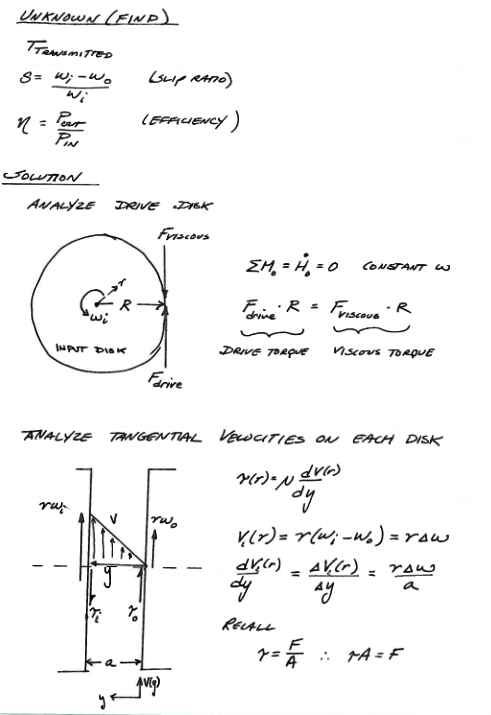 UNKNOWN (FIND)
T TRANSMITTED
S = ωi - ωo / ωi (SLIP RATIO)
η = Pout / PIN (EFFICIENCY)
SOLUTION
ANALYZE DRIVE DISK
Fviscous
r
R
ωi
INPUT DISK
Fdrive
ΣMo = Ḣo = 0 CONSTANT ω
Fdrive · R = Fviscous · R
DRIVE TORQUE VISCOUS TORQUE
ANALYZE TANGENTIAL VELOCITIES ON EACH DISK
rωi
V
rωo
y
τi
τo
a
V(y)
y
τ(r) = μ dV(r) / dy
Vi(r) = r(ωi - ωo) = rΔω
dVi(r) / dy = ΔVi(r) / Δy = rΔω / a
RECALL
τ = F / A ∴ τA = F